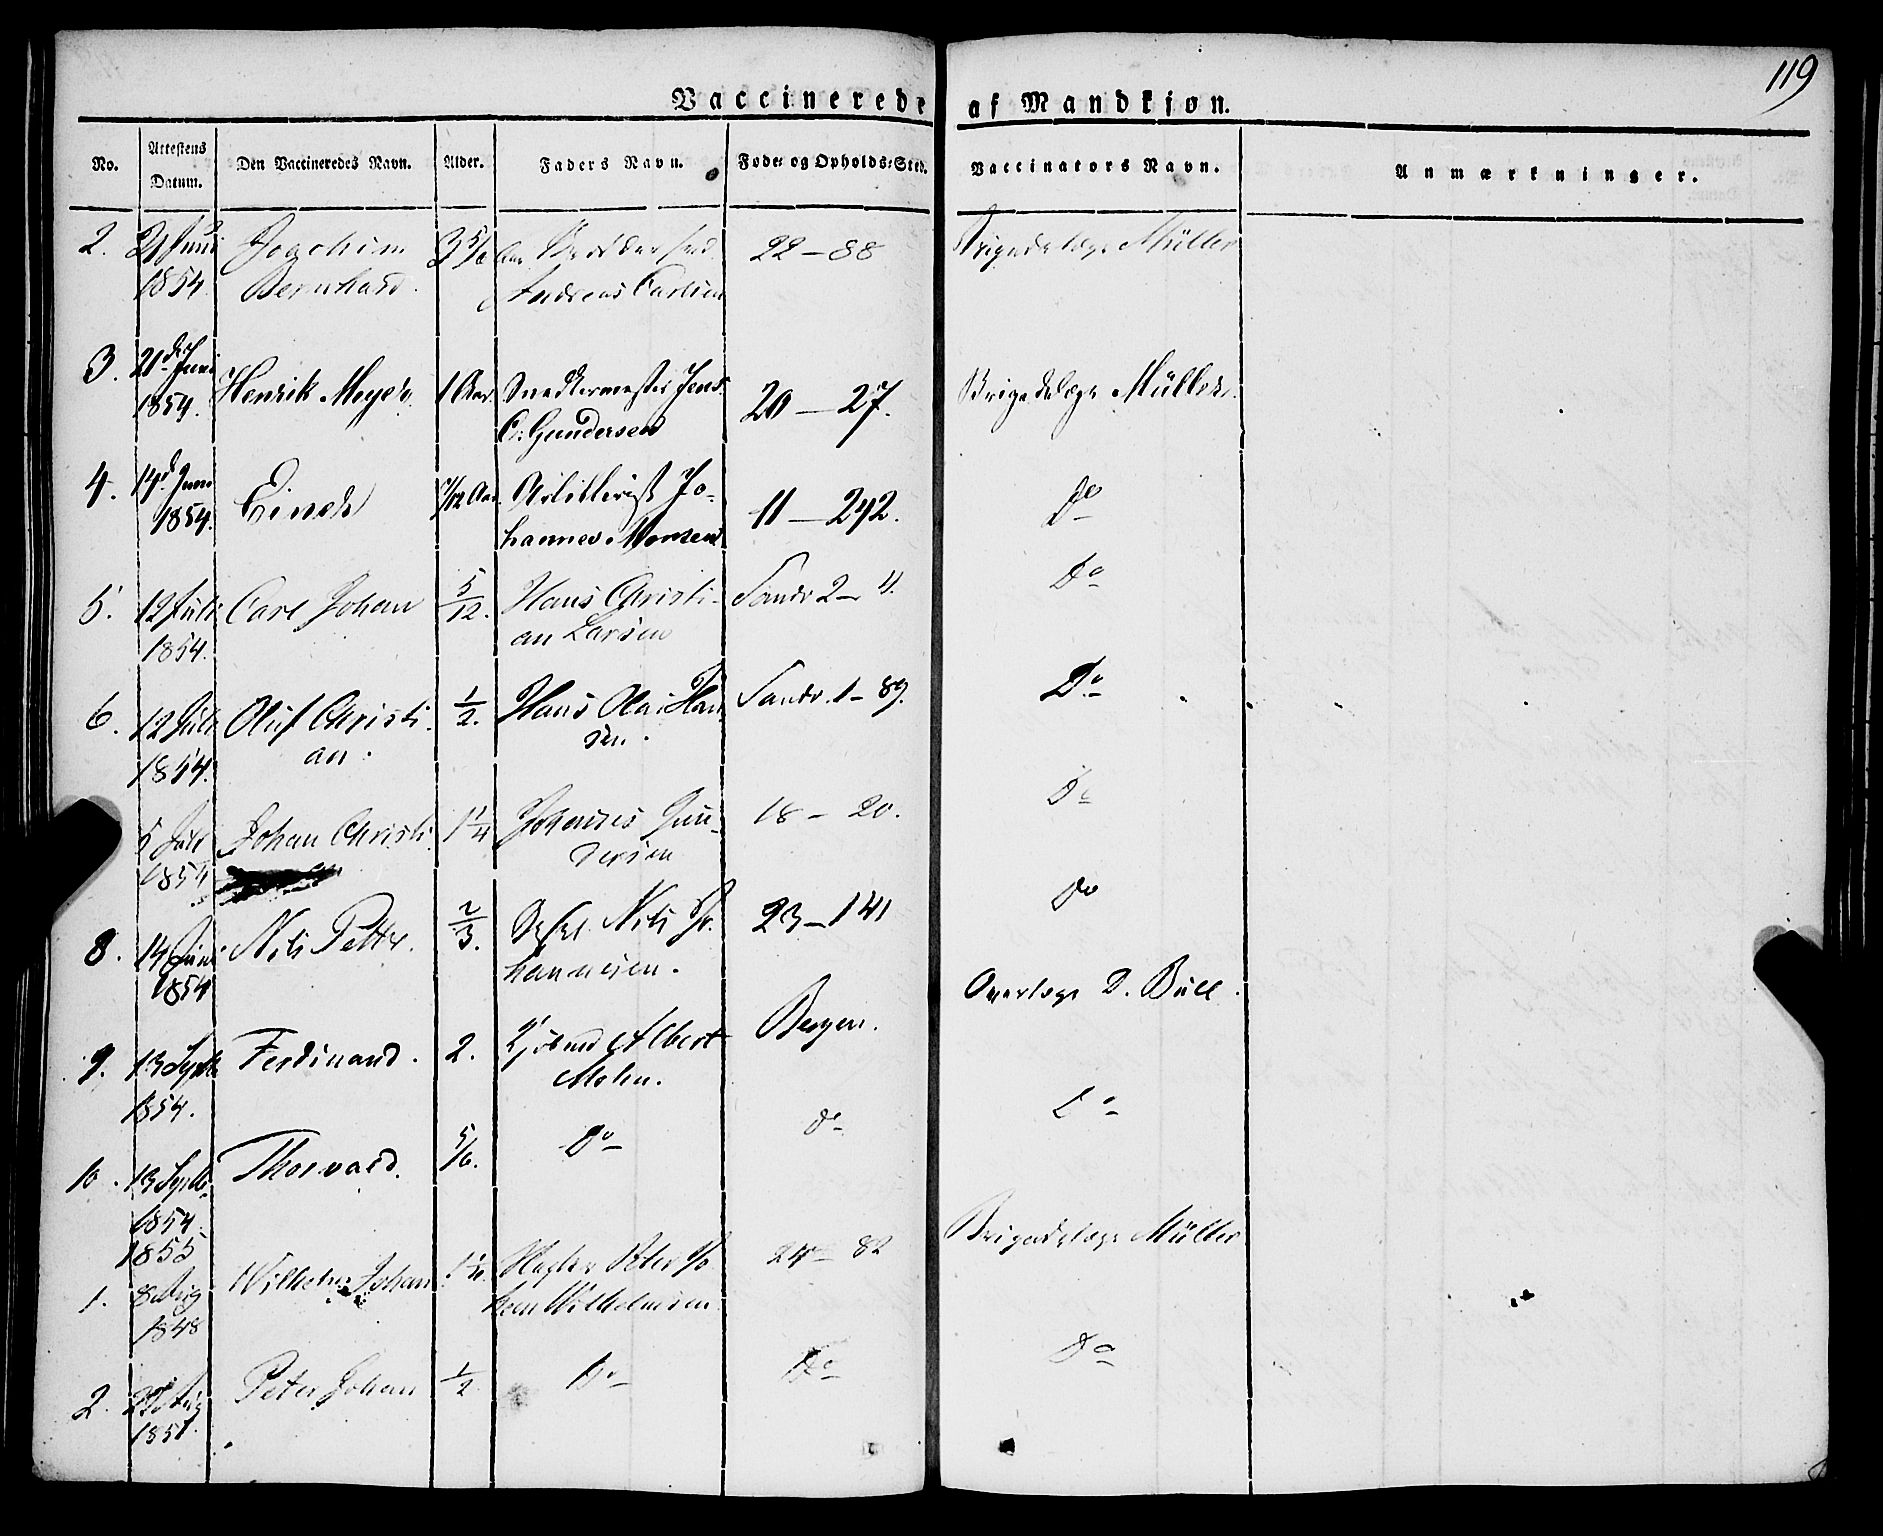 119
Vaccinerede af Mandkjøn.
No. Attestens Datum. Den Vaccineredes Navn. Alder. Faders Navn. Føde- og Opholds-Sted. Vaccinators Navn. Anmærkninger.
2. 21 Juni Joachim 3 5/6 22 – 88 Brigadelæge Müller
1854. Bernhard. Andreas Carlsen
3. 21de Juni Henrik Meyer 1 Aar Snedkermester Jens 20 – 27. Brigadelæge Müller.
1854. C. Gundersen
4. 14d Juni Einar 7/12 Aar Artillerist Jo- 11 – 242. Do
1854. hannes Monsen
5. 12 Juli Carl Johan 5/12. Hans Christi- Sandv 2 – 4. Do
1854. an Larsen
6. 12 Juli Oluf Christi- 1/2. Hans Olai Han- Sandv. 1 – 89. Do
1854. an. sen.
5 Juli Johan Christi. 1 1/4 Johannes Gun- 18 – 20. Do
1854 dersen
8. 14 Juni Nils Petter. 2/3. Nils Jo- 23 – 141 Do
1854 hannesen.
9. 13 Septb Ferdinand. 2. Kjøbmd Albert Bergen. Overlæge D. Bull.
1854. Mohn.
10. 13 Septb. Thorvald. 5/6. Do Do Do
1854.
1855
1. 8 Aug Wilhelm Johan 1 1/4 Peter Jo 24 – 82 Brigadelæge Müller
1848 han Wilhelmsen
2. Aug Peter Johan 1/2 Do Do Do
1851